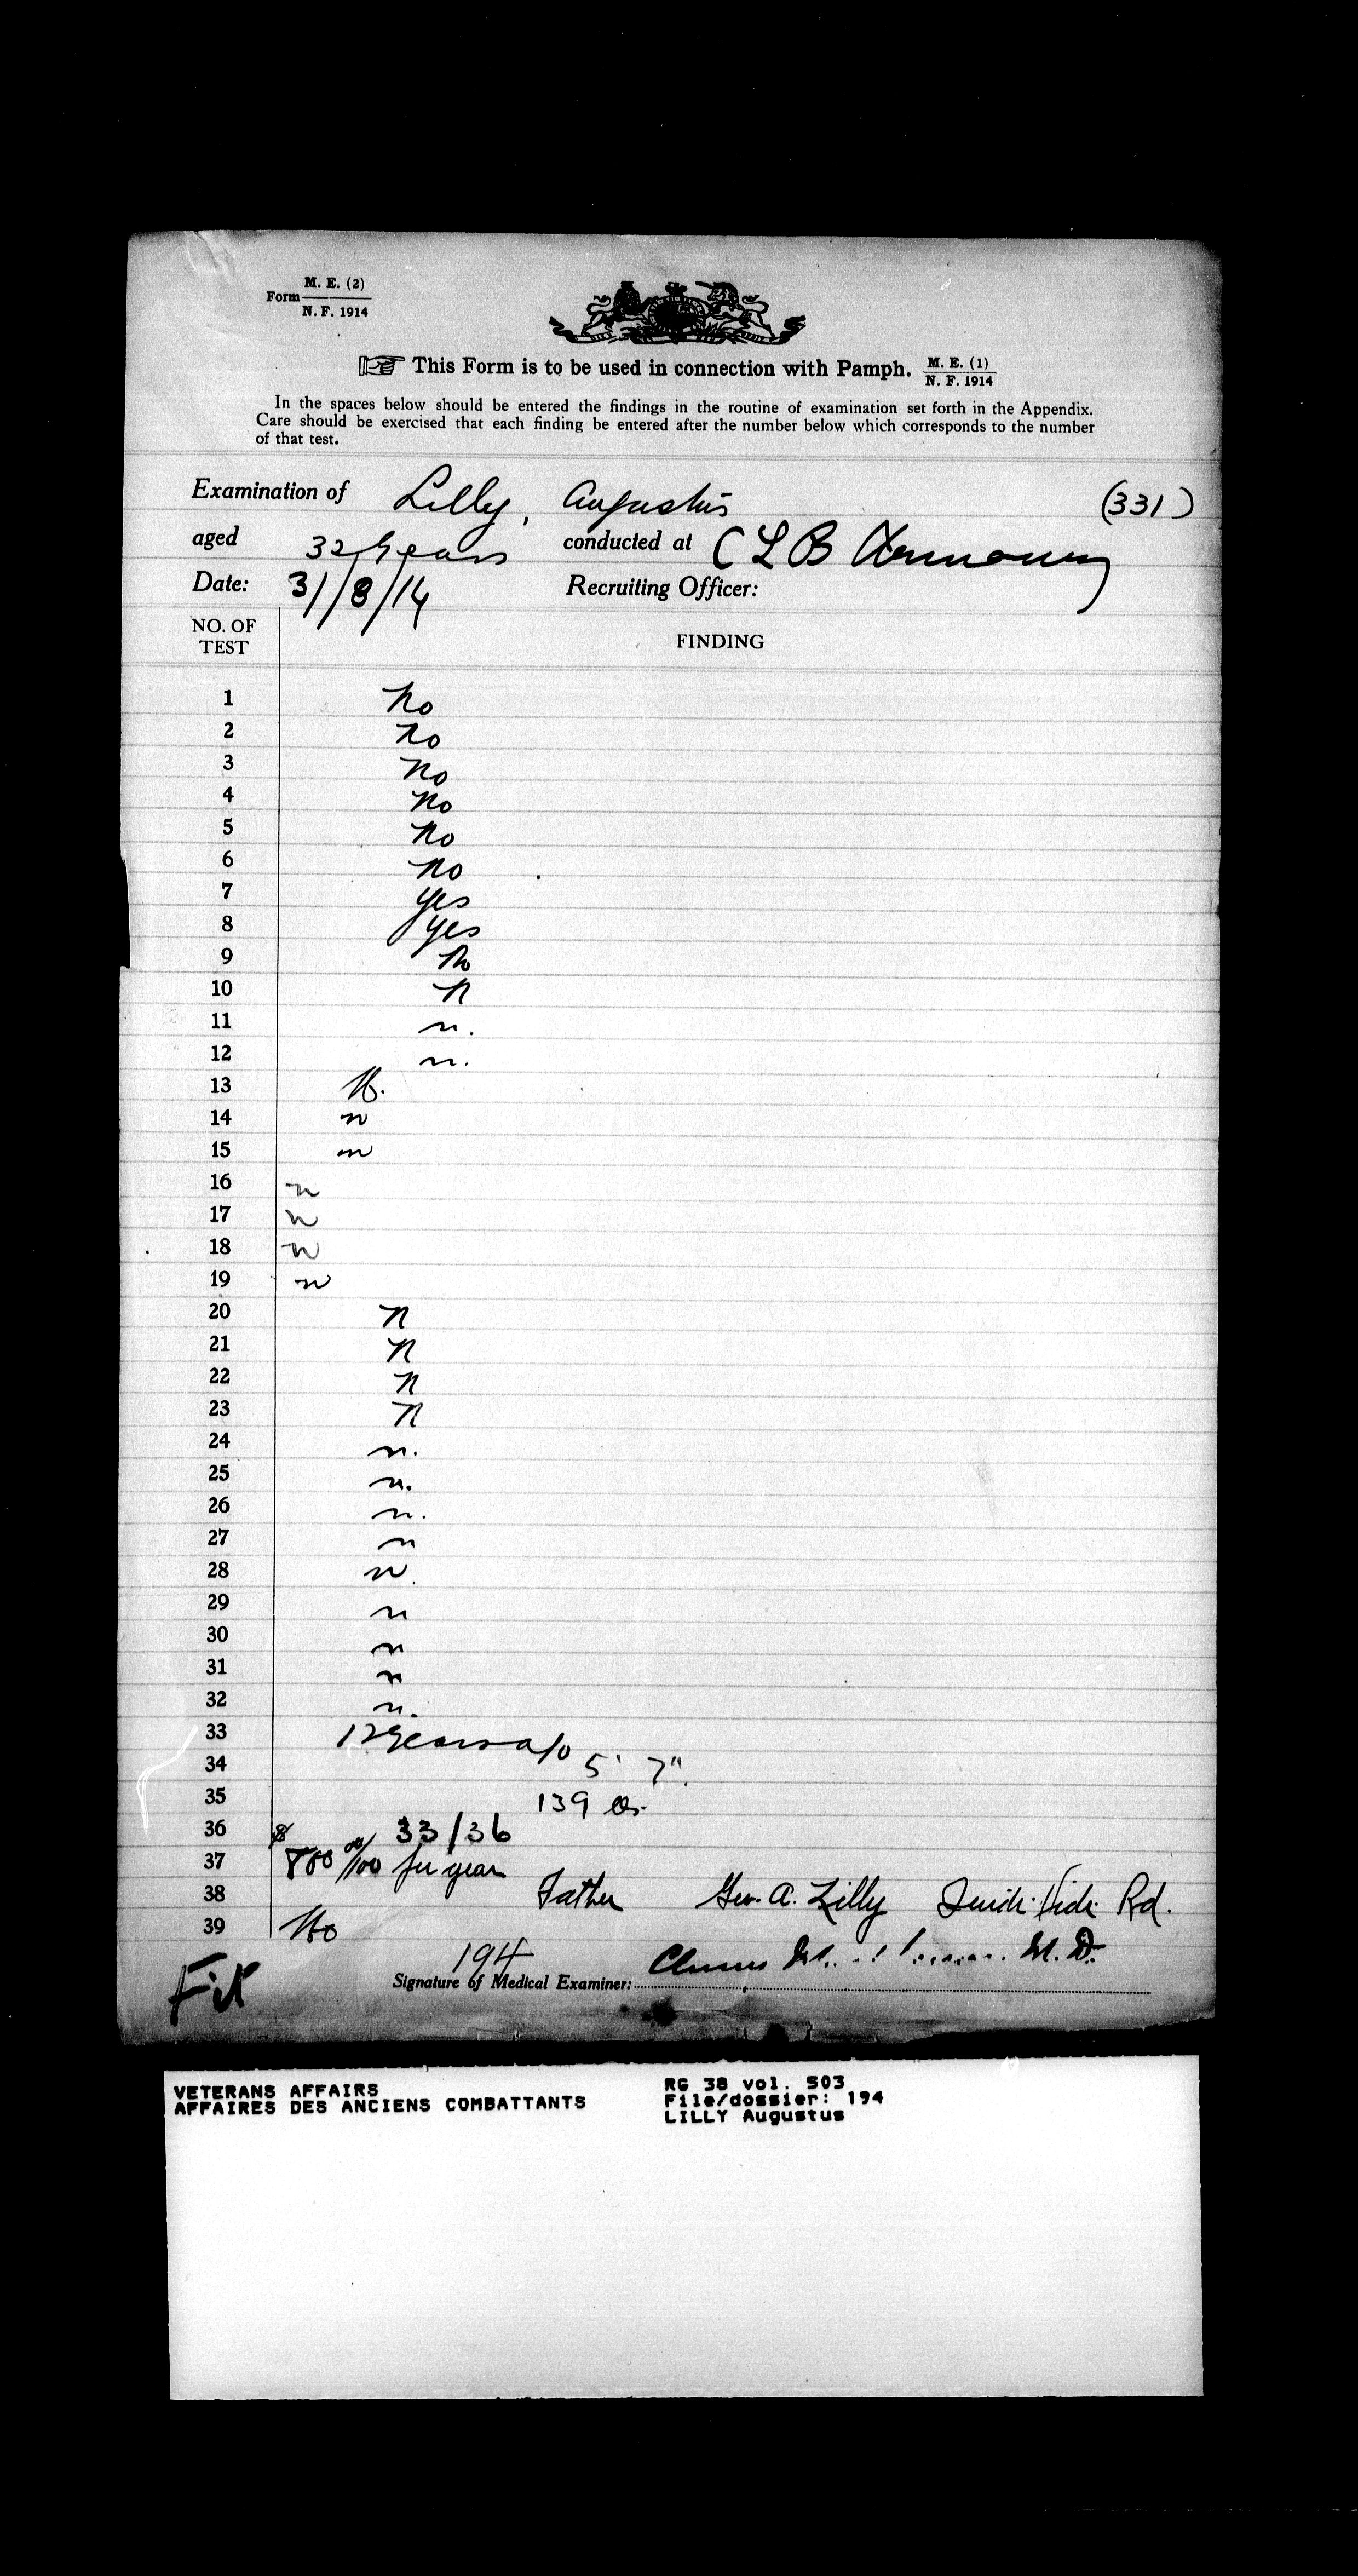 Form M. E. (2)
N. F. 1914
This Form is to be used in connection with Pamph. M. E. (1)
N. F. 1914
In the spaces below should be entered the findings in the routine of examination set forth in the Appendix.
Care should be exercised that each finding be entered after the number below which corresponds to the number
of that test.
Examination of Lilly, Augustus (331)
aged 32 years conducted at C L B Armoury
Date: 31/8/14 Recruiting Officer:
NO. OF
TEST
FINDING
1 No
2 No
3 No
4 No
5 No
6 No
7 yes
8 yes
9 No
10 N
11 n.
12 n.
13 No.
14 n
15 n
16 n
17 n
18 n
19 n
20 N
21 N
22 N
23 N
24 n.
25 n.
26 n.
27 n
28 n.
29 n
30 n
31 n
32 n.
33 12 years ago
34 5' 7".
35 139 lbs.
36 33/36
37 $ 800 00/100 per year
38 Father Geo. A. Lilly Rd.
39 No
Fit
194
Signature of Medical Examiner: M. D.
VETERANS AFFAIRS
AFFAIRES DES ANCIENS COMBATTANTS
RG 38 vol. 503
File/dossier: 194
LILLY Augustus